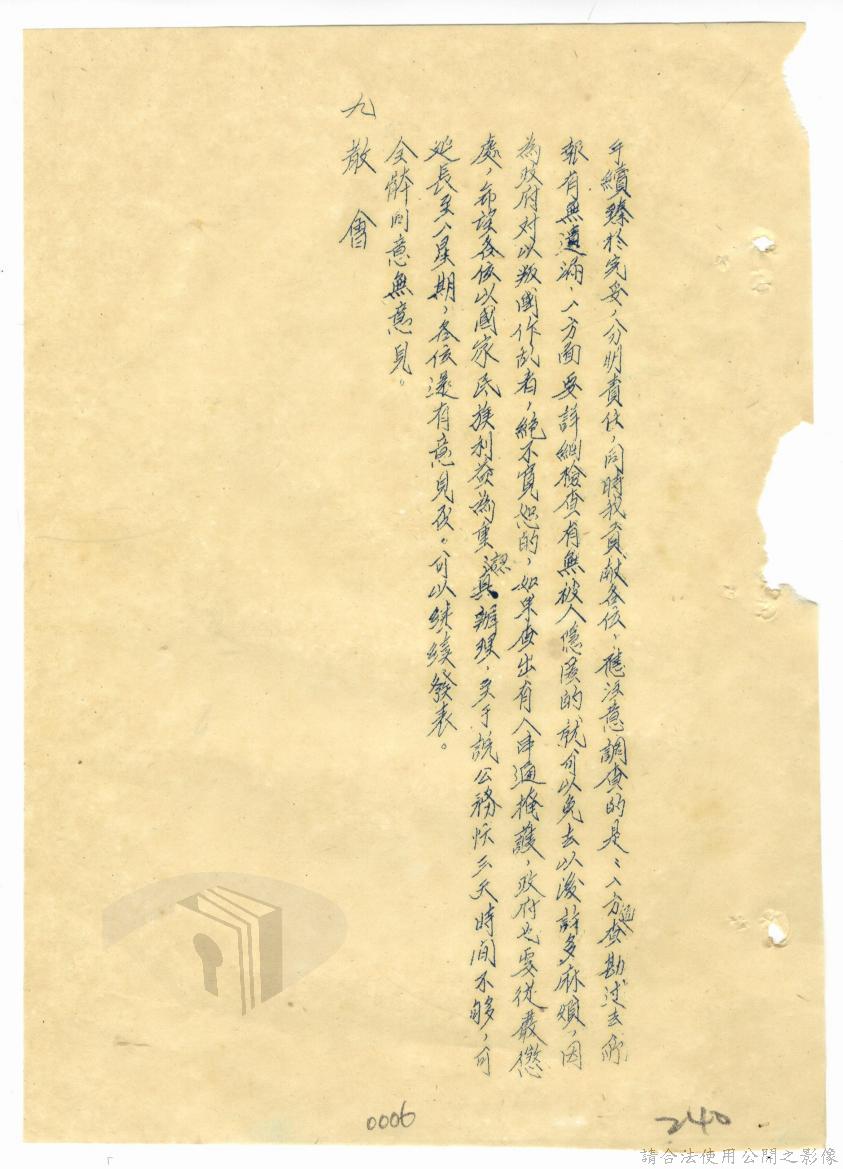 手續臻於完妥，分明責任，同時我貢献各位，應注意調查的是、一方面查勘过去所
報有無遺漏、一方面要詳細檢查有無被人隱匿的就可以免去以後許多麻煩，因
為政府对以叛國作乱者，絕不寬恕的，如果查出有人串通掩護，政府也要從嚴懲
處，希望各位以國家民族利益為重認真辦理，至于說公務忙三天時间不够，可
延長至一星期，各位還有意見否。可以继续發表。
全體同意無意見。
九 散 會
0006
240
請合法使用公開之影像